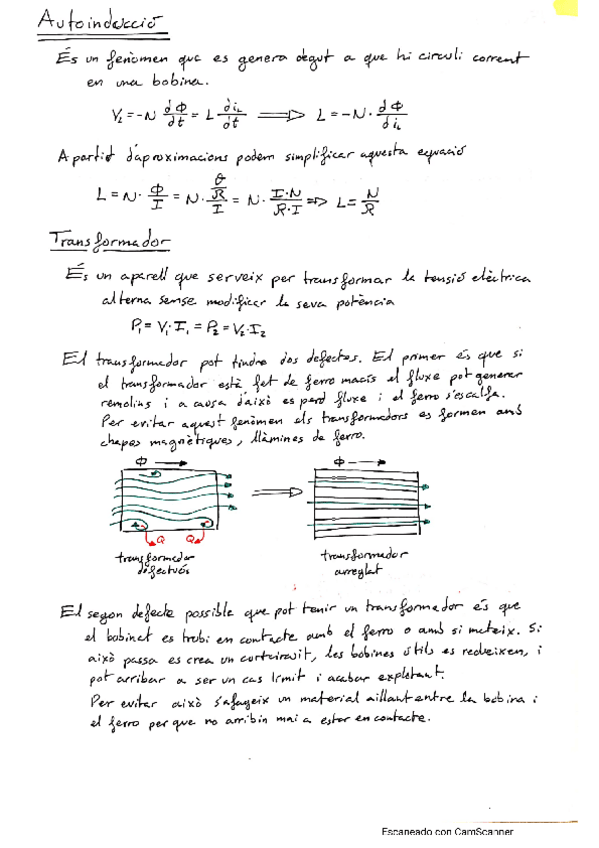 Autoinducció
És un fenòmen que es genera degut a que hi circuli corrent
en una bobina.
V_L = -N dΦ/dt = L di_L/dt ⟹ L = -N · dΦ/di_L
A partid d'aproximacions podem simplificar aquesta equació
L = N · Φ/I = N · (θ/R)/I = N · I·N/R·I ⟹ L = N/R
Transformador
És un aparell que serveix per transformar la tensió elèctrica
alterna sense modificar la seva potència
P₁ = V₁·I₁ = P₂ = V₂·I₂
El transformador pot tindre dos defectes. El primer és que si
el transformador està fet de ferro macís el fluxe pot generar
remolins i a causa d'això es perd fluxe i el ferro s'escalfa.
Per evitar aquest fenòmen els transformadors es formen amb
chapes magnètiques, llàmines de ferro.
Φ → Φ →
Q Q
transformador transformador
defectuós arreglat
El segon defecte possible que pot tenir un transformador és que
el bobinat es trobi en contacte amb el ferro o amb si mateix. Si
això passa es crea un curtcircuit, les bobines útils es redueixen, i
pot arribar a ser un cas límit i acabar explotant.
Per evitar això s'afageix un material aïllant entre la bobina i
el ferro per que no arribin mai a estar en contacte.
Escaneado con CamScanner